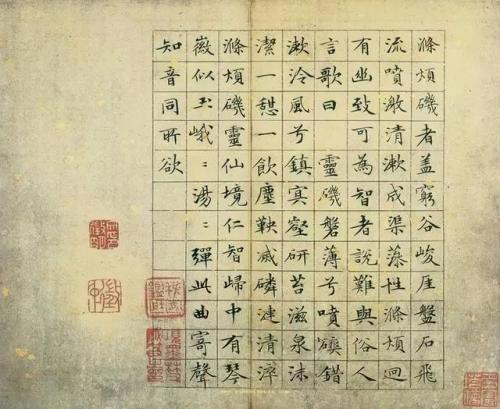 滌煩磯者盖窮谷峻厓盤石飛
流噴激清漱成渠藻性滌煩迴
有幽致可為智者說難與俗人
言歌曰 靈磯磐薄兮噴錯
漱泠風兮鎮冥壑研苔滋泉沫
潔一憩一飲塵鞅滅磷漣清淬
滌煩磯靈仙境仁智歸中有琴
徽似玉峨〻湯〻彈此曲寄聲
知音同所欲